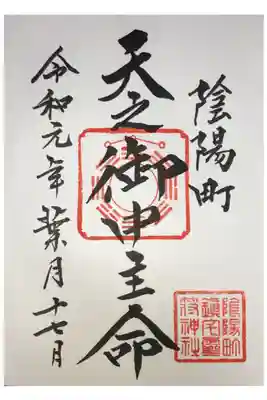 陰陽町
天之御中主命
令和元年葉月十七日
陰陽町
鎮宅霊
符神社